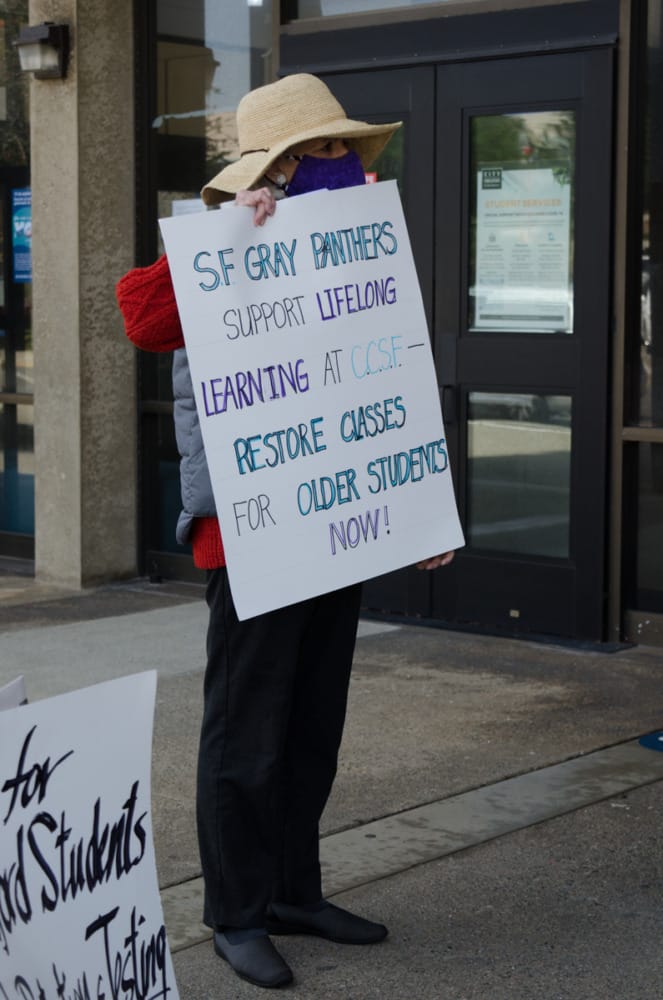 S.F GRAY PANTHERS
SUPPORT LIFELONG
LEARNING AT C.C.S.F. —
RESTORE CLASSES
FOR OLDER STUDENTS
NOW!
CITY
STUDENT SERVICES
for
Students
Testing